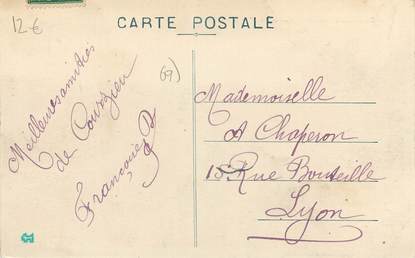 12 €
CARTE POSTALE
(69)
Meilleures amitiés
de Courzieu
Mademoiselle
A Chaperon
15 Rue Bouteille
Lyon